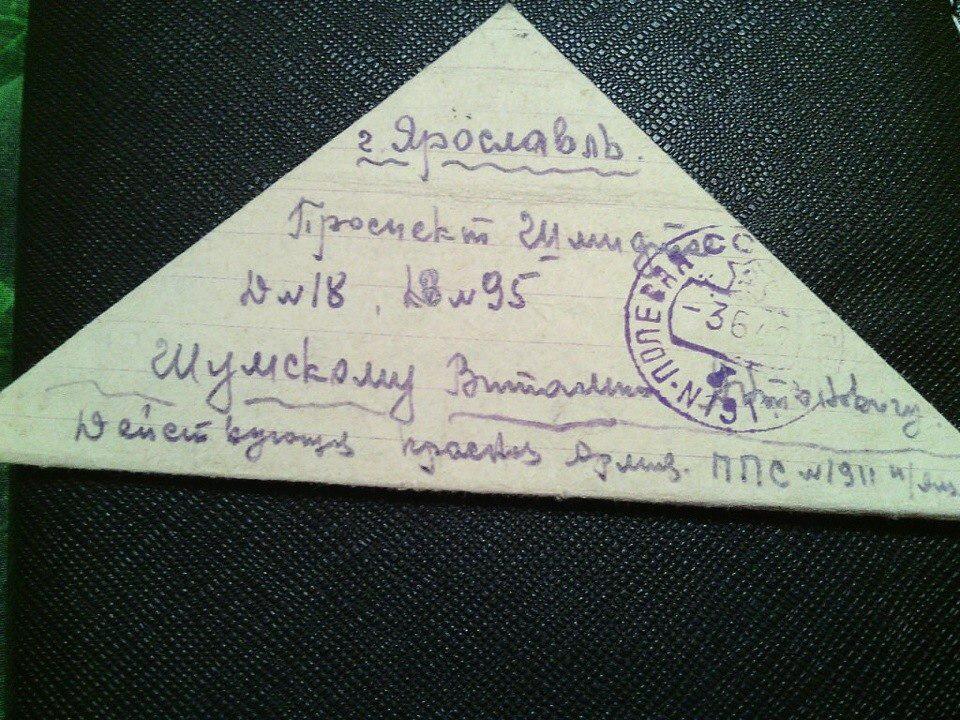 г. Ярославль.
Проспект Шмидта
Д № 18, кв № 95
Шумскому Виталию
Действующая красная армия. ППС № 1911 п/ящ
ПОЛЕВАЯ
СССР
-3 6 42